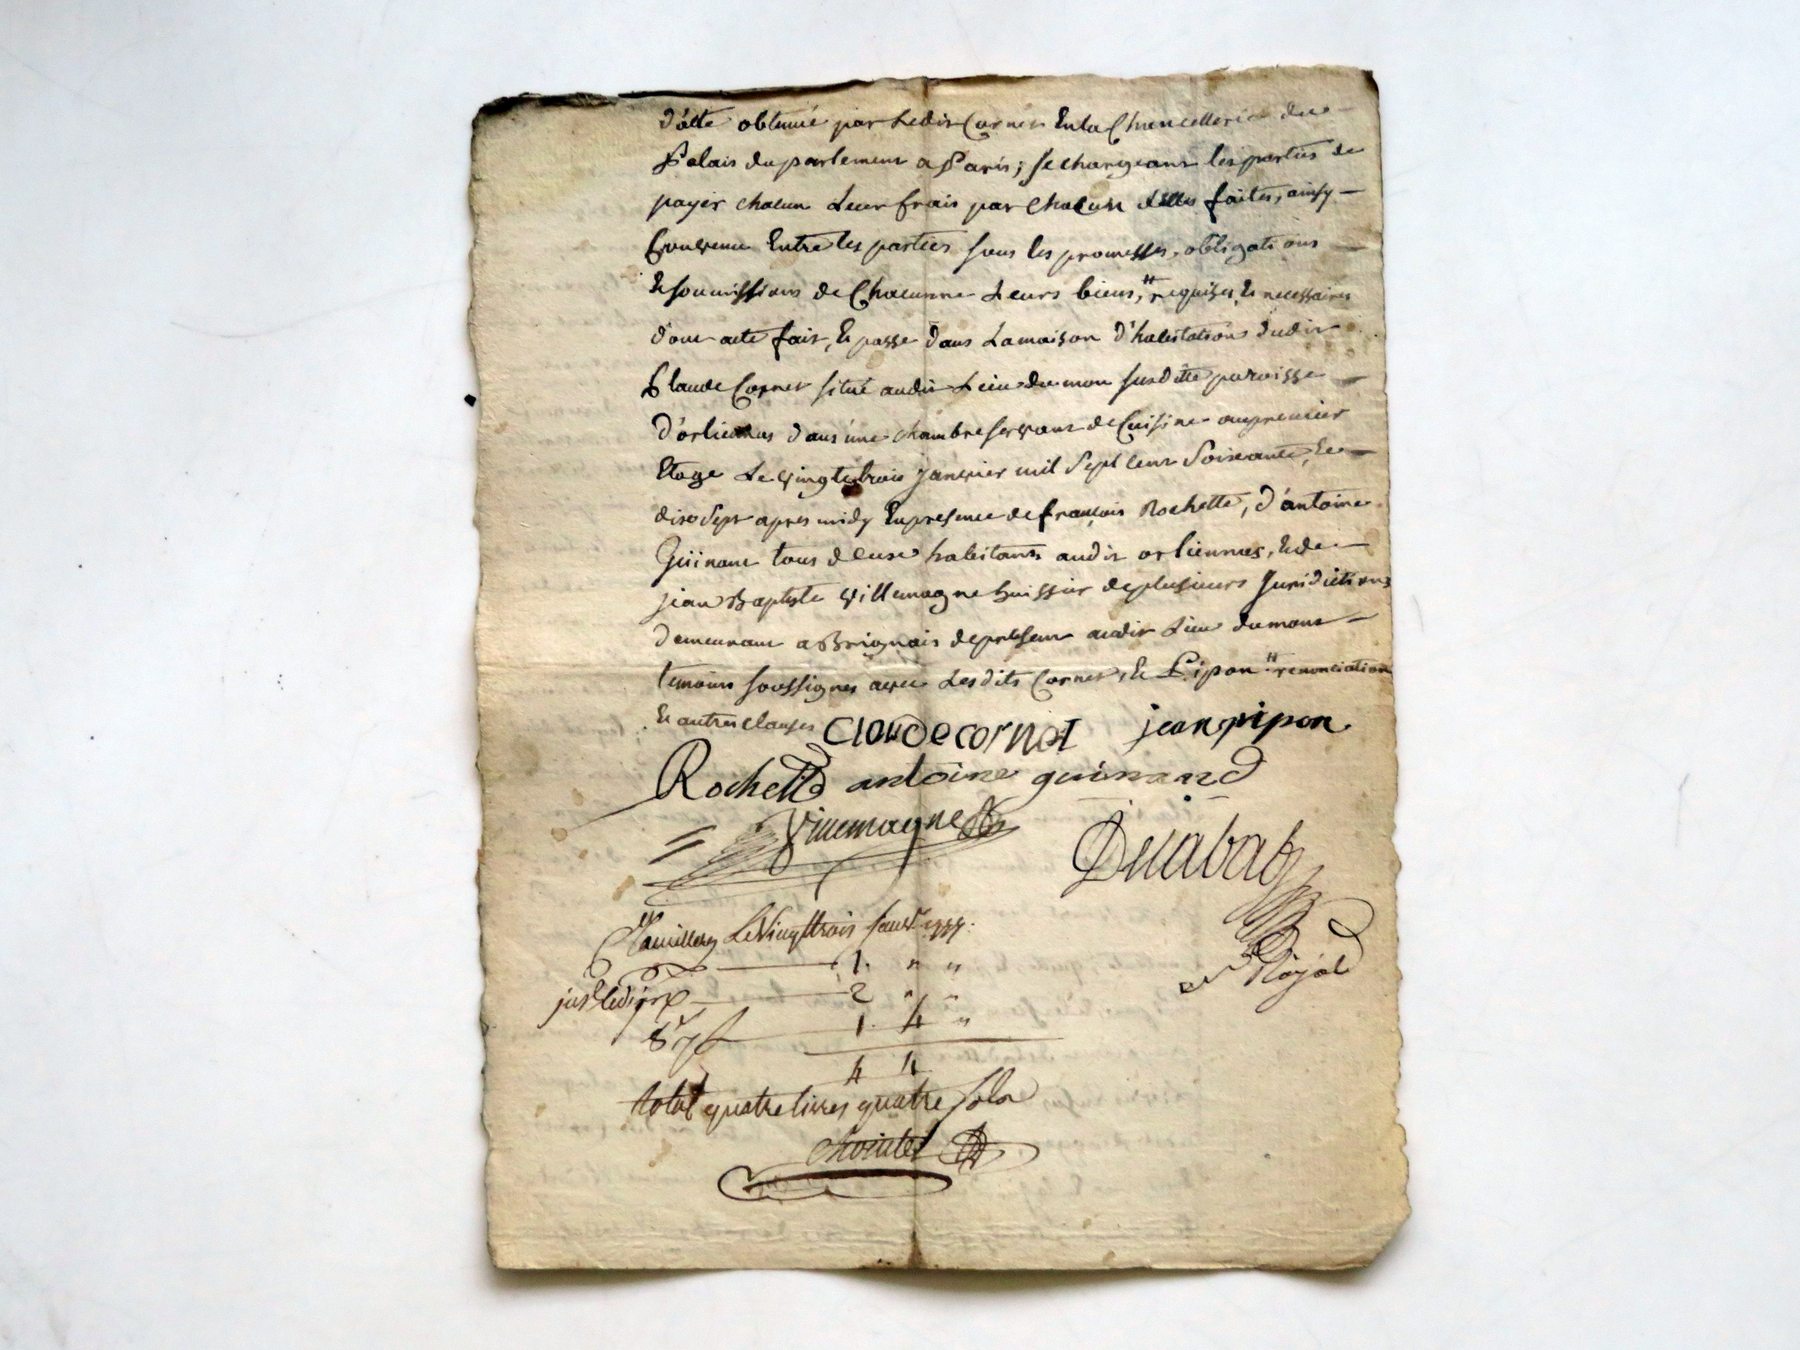 d'élte obtenue par Ledit Cornet En la Chancellerie du
Palais du parlement a Paris; se chargeant les parties de
payer chacun Leur frais par chacun d'elles faites, ainsy
Convenu Entre les parties sous les promesses, obligations
& soumissions de Chacunne Leurs biens, # requises & necessaires
dont acte fait, & passé dans La maison d'habitation dudit
Claude Cornet situé audit Lieu du mon susditte paroisse
d'orliennas dans une chambre servant de Cuisine au premier
Etage Le vingt trois janvier mil sept cent soixante, &
dix sept apres midy En presence de françois Rochette, d'antoine
Guinant tous deux habitants audit orliennas, & de
jean Baptiste villemagne huissier de plusieurs Juridictions
demeurant a Brignais de present audit Lieu du mont
temoins soussignes avec Lesdits Cornet, & Pipon # renonciation
& autres clauses CLAUDE cornet jean pipon
Rochette antoine guinand
Villemagne
Le vingt trois janv.r 1777.
1. " "
2 " "
1. 4 "
4 4
total quatre livres quatre sols
Royal